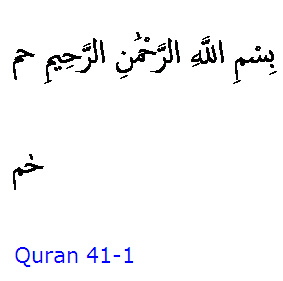 بِسْمِ اللَّهِ الرَّحْمَٰنِ الرَّحِيمِ حم
حٰم
Quran 41-1